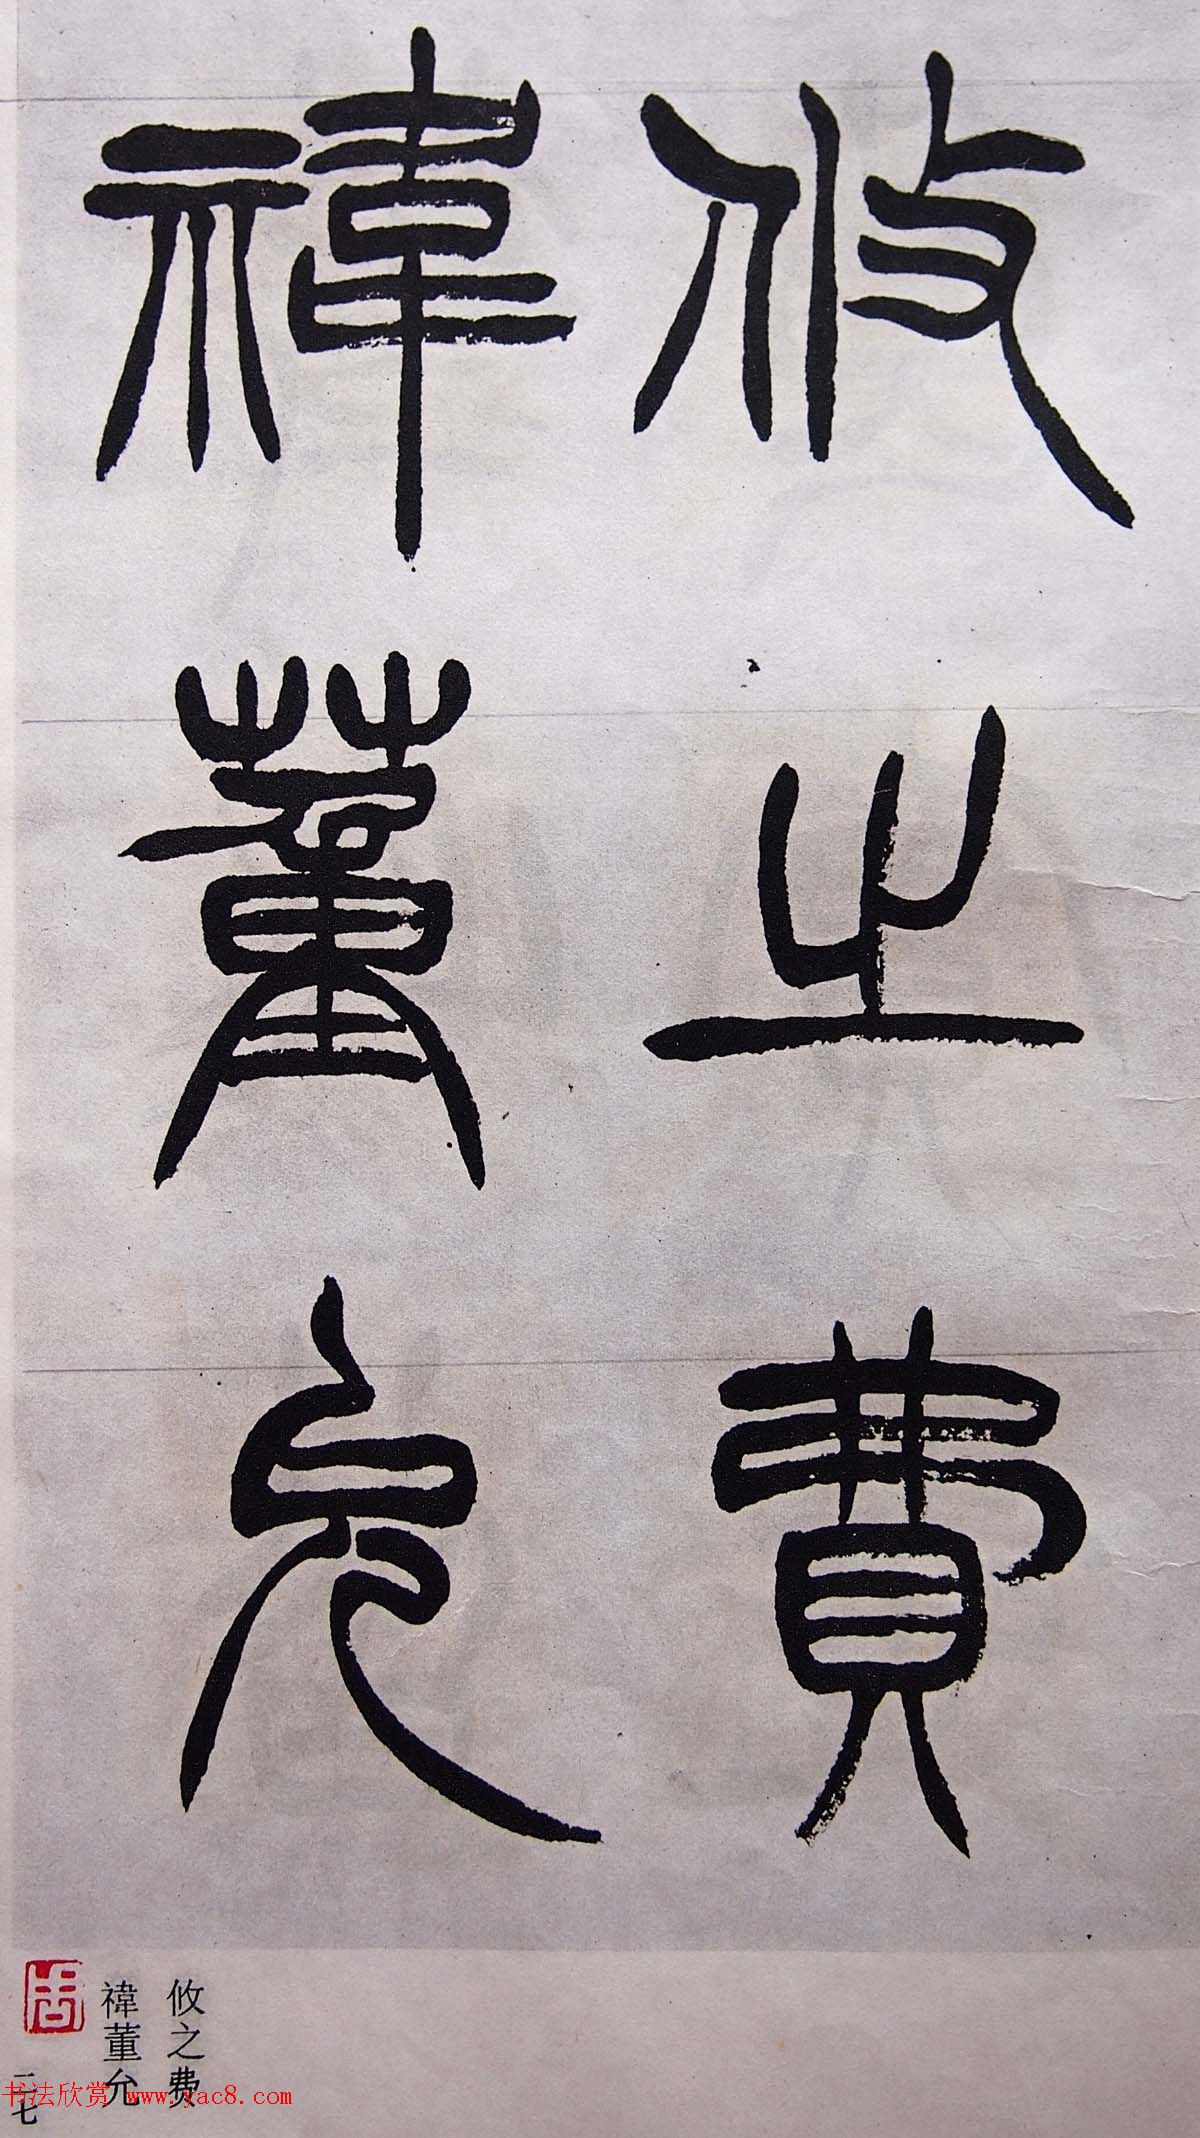 攸之費
禕董允
攸之费
禕董允
二七
书法欣赏 www.yac8.com